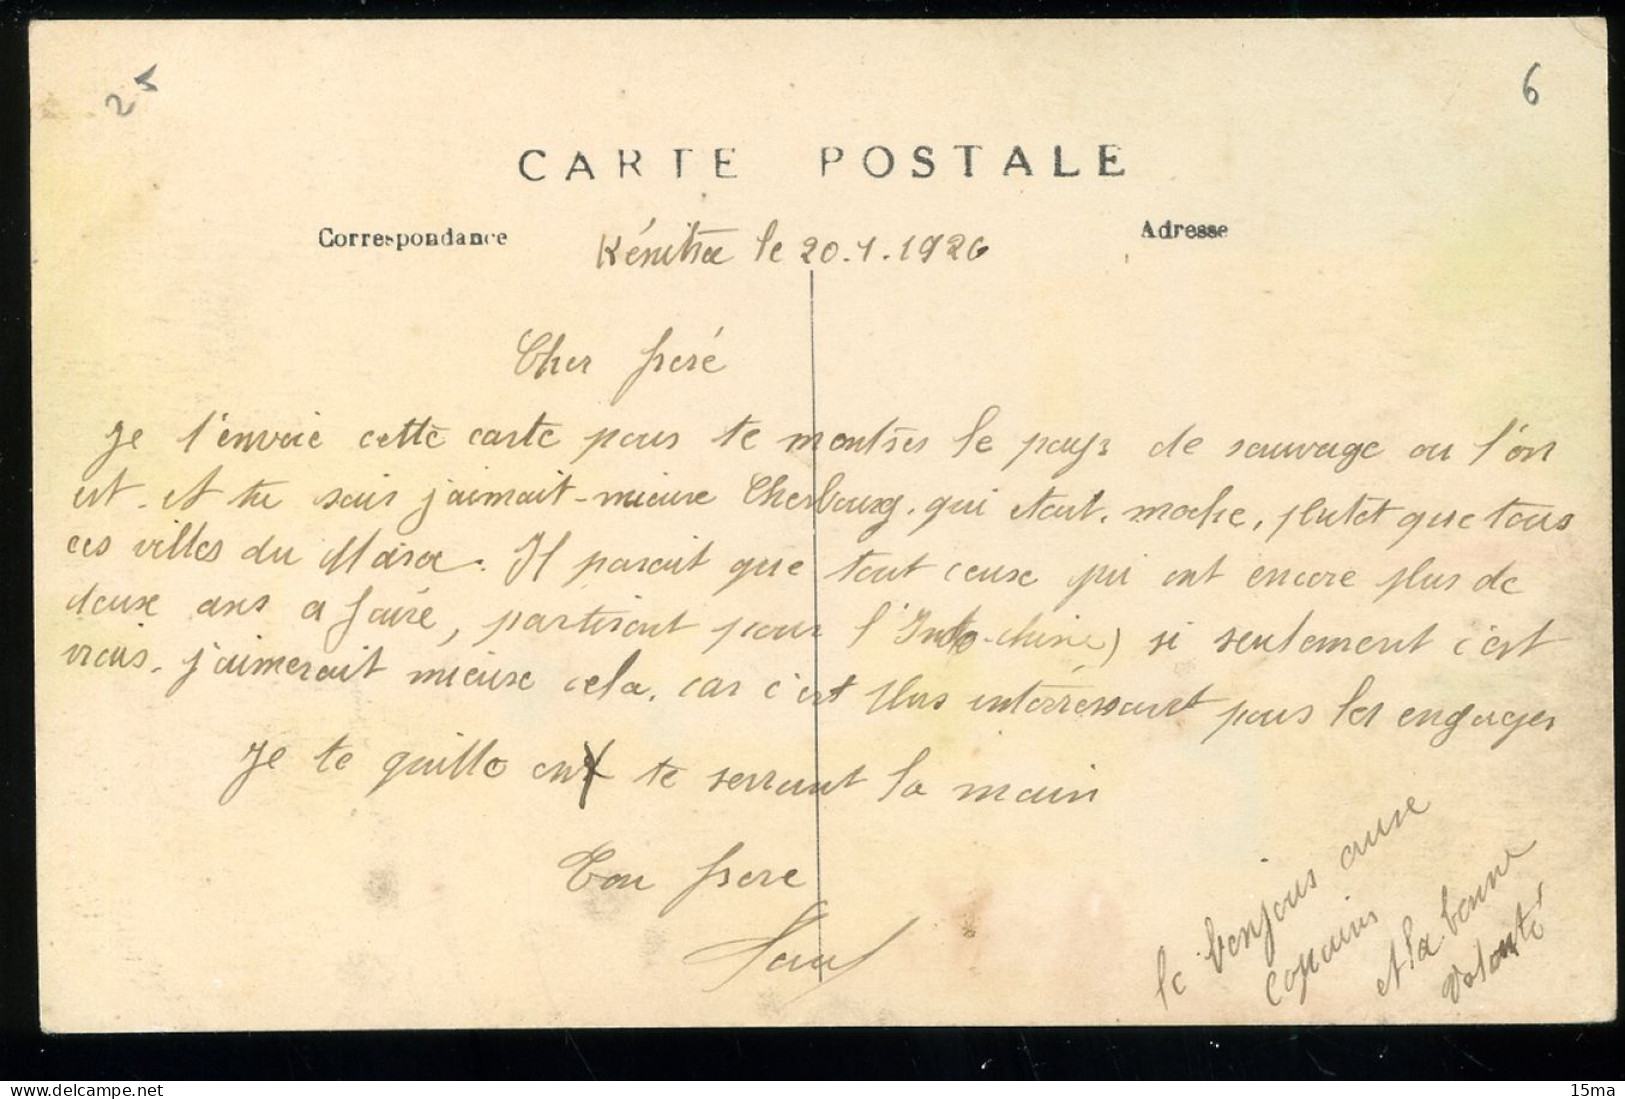 25
6
CARTE POSTALE
Correspondance
Adresse
Kénitra le 20.1.1926
Cher frere
Je t'envoie cette carte pour te montrer le pays de sauvage ou l'on
est. et tu sais j'aimait mieux Cherbourg, qui etait moche, plutot que tous
ces villes du Maroc. Il parait que tout ceux qui ont encore plus de
deux ans a faire, partirait pour l'Indo-chine) si seulement c'est
vrais. j'aimerait mieux cela, car c'est plus intérressant pour les engager
Je te quitte en te serrant la main
Ton frere
le bonjour aux
copains
et la bonne
volonté
delcampe.net
15ma